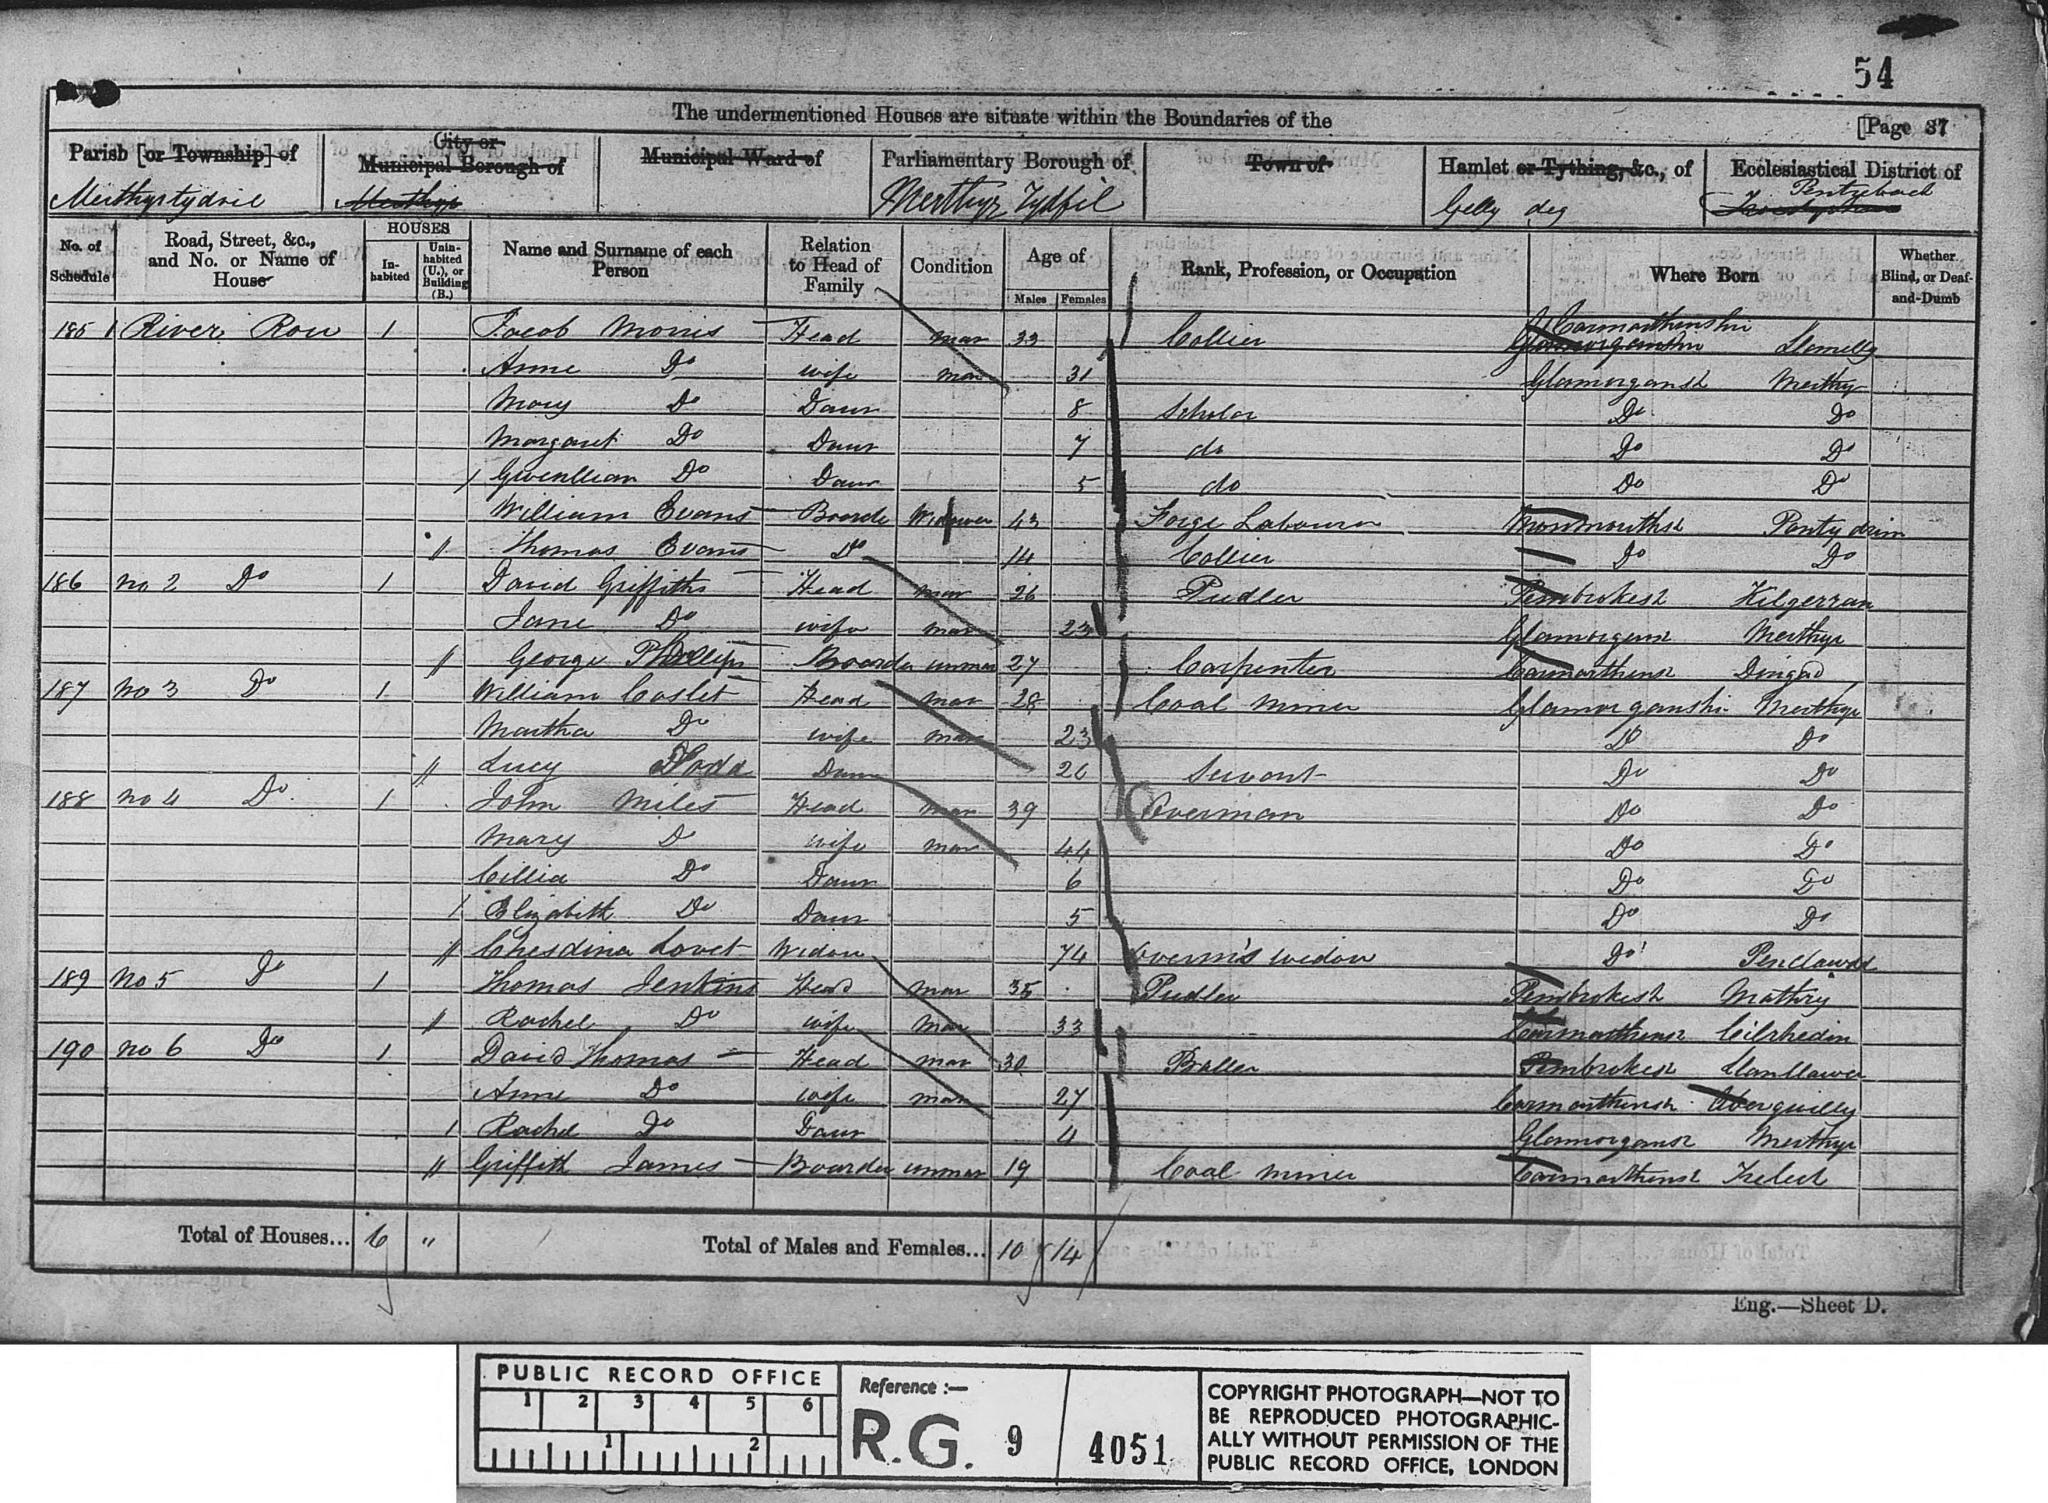 54
The undermentioned Houses are situate within the Boundaries of the
[Page 37
Parish [or Township] of City or Municipal Borough of Municipal Ward of Parliamentary Borough of Town of Hamlet or Tything, &c., of Ecclesiastical District of
Merthyrtydvil Merthyr Merthyr Tydfil Gelly deg Pentrebach
No. of Schedule Road, Street, &c., and No. or Name of House HOUSES Inhabited Uninhabited (U.), or Building (B.) Name and Surname of each Person Relation to Head of Family Condition Age of Males Females Rank, Profession, or Occupation Where Born Whether Blind, or Deaf-and-Dumb
185 1 River Row 1 Jacob Morris Head mar 33 Collier Glamorganshir Carmarthenshir Llanelly
Anne Do wife mar 31 Glamorgansh Merthyr
Mary Do Daur 8 Scholar Do Do
Margaret Do Daur 7 do Do Do
Gwenllian Do Daur 5 do Do Do
William Evans Boarde Widower 43 Forge Labourer Monmouthsh
Thomas Evans Do 14 Collier Do Do
186 no 2 Do 1 David Griffiths Head mar 26 Pudler Pembrokesh Kilgerran
Jane Do wife mar 23 Glamorgans Merthyr
George Phillips Boarder unmar 27 Carpenter Carmarthensh Dingad
187 no 3 Do 1 William Coslet Head mar 28 Coal miner Glamorganshi Merthyr
Martha Do wife mar 23 D Do
Lucy Daur 26 Servant Do Do
188 no 4 Do 1 John Miles Head mar 39 Overman Do Do
Mary D wife mar 44 Do Do
Cillia Do Daur 6 Do Do
Elizabeth Do Daur 5 Do Do
Lovet Widow 74 widow Do
189 No 5 Do 1 Thomas Jenkins Head mar 35 Pudler Pembrokesh Mathry
Rachel Do wife mar 33 Carmarthensh Cilrhedin
190 no 6 Do 1 David Thomas Head mar 30 Baller Pembrokesh Llanllawer
Anne Do wife mar 27 Carmarthensh Aberguilly
Rachel Do Daur 4 Glamorgansh Merthyr
Griffith James Boarder unmar 19 Coal miner Carmarthensh Trelech
Total of Houses... 6 " Total of Males and Females... 10 14
Eng.—Sheet D.
PUBLIC RECORD OFFICE
1 2 3 4 5 6
1 2
Reference :—
R.G. 9 4051
COPYRIGHT PHOTOGRAPH—NOT TO
BE REPRODUCED PHOTOGRAPHIC-
ALLY WITHOUT PERMISSION OF THE
PUBLIC RECORD OFFICE, LONDON